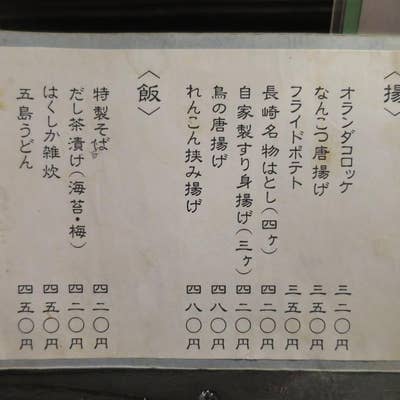 〈揚〉
オランダコロッケ 三二〇円
なんこつ唐揚げ 三五〇円
フライドポテト 三五〇円
長崎名物はとし(四ヶ) 四二〇円
自家製すり身揚げ(三ヶ) 四二〇円
鳥の唐揚げ 四八〇円
れんこん挟み揚げ 四八〇円
〈飯〉
特製そば 四二〇円
だし茶漬け(海苔・梅) 四二〇円
はくしか雑炊 四五〇円
五島うどん 四五〇円